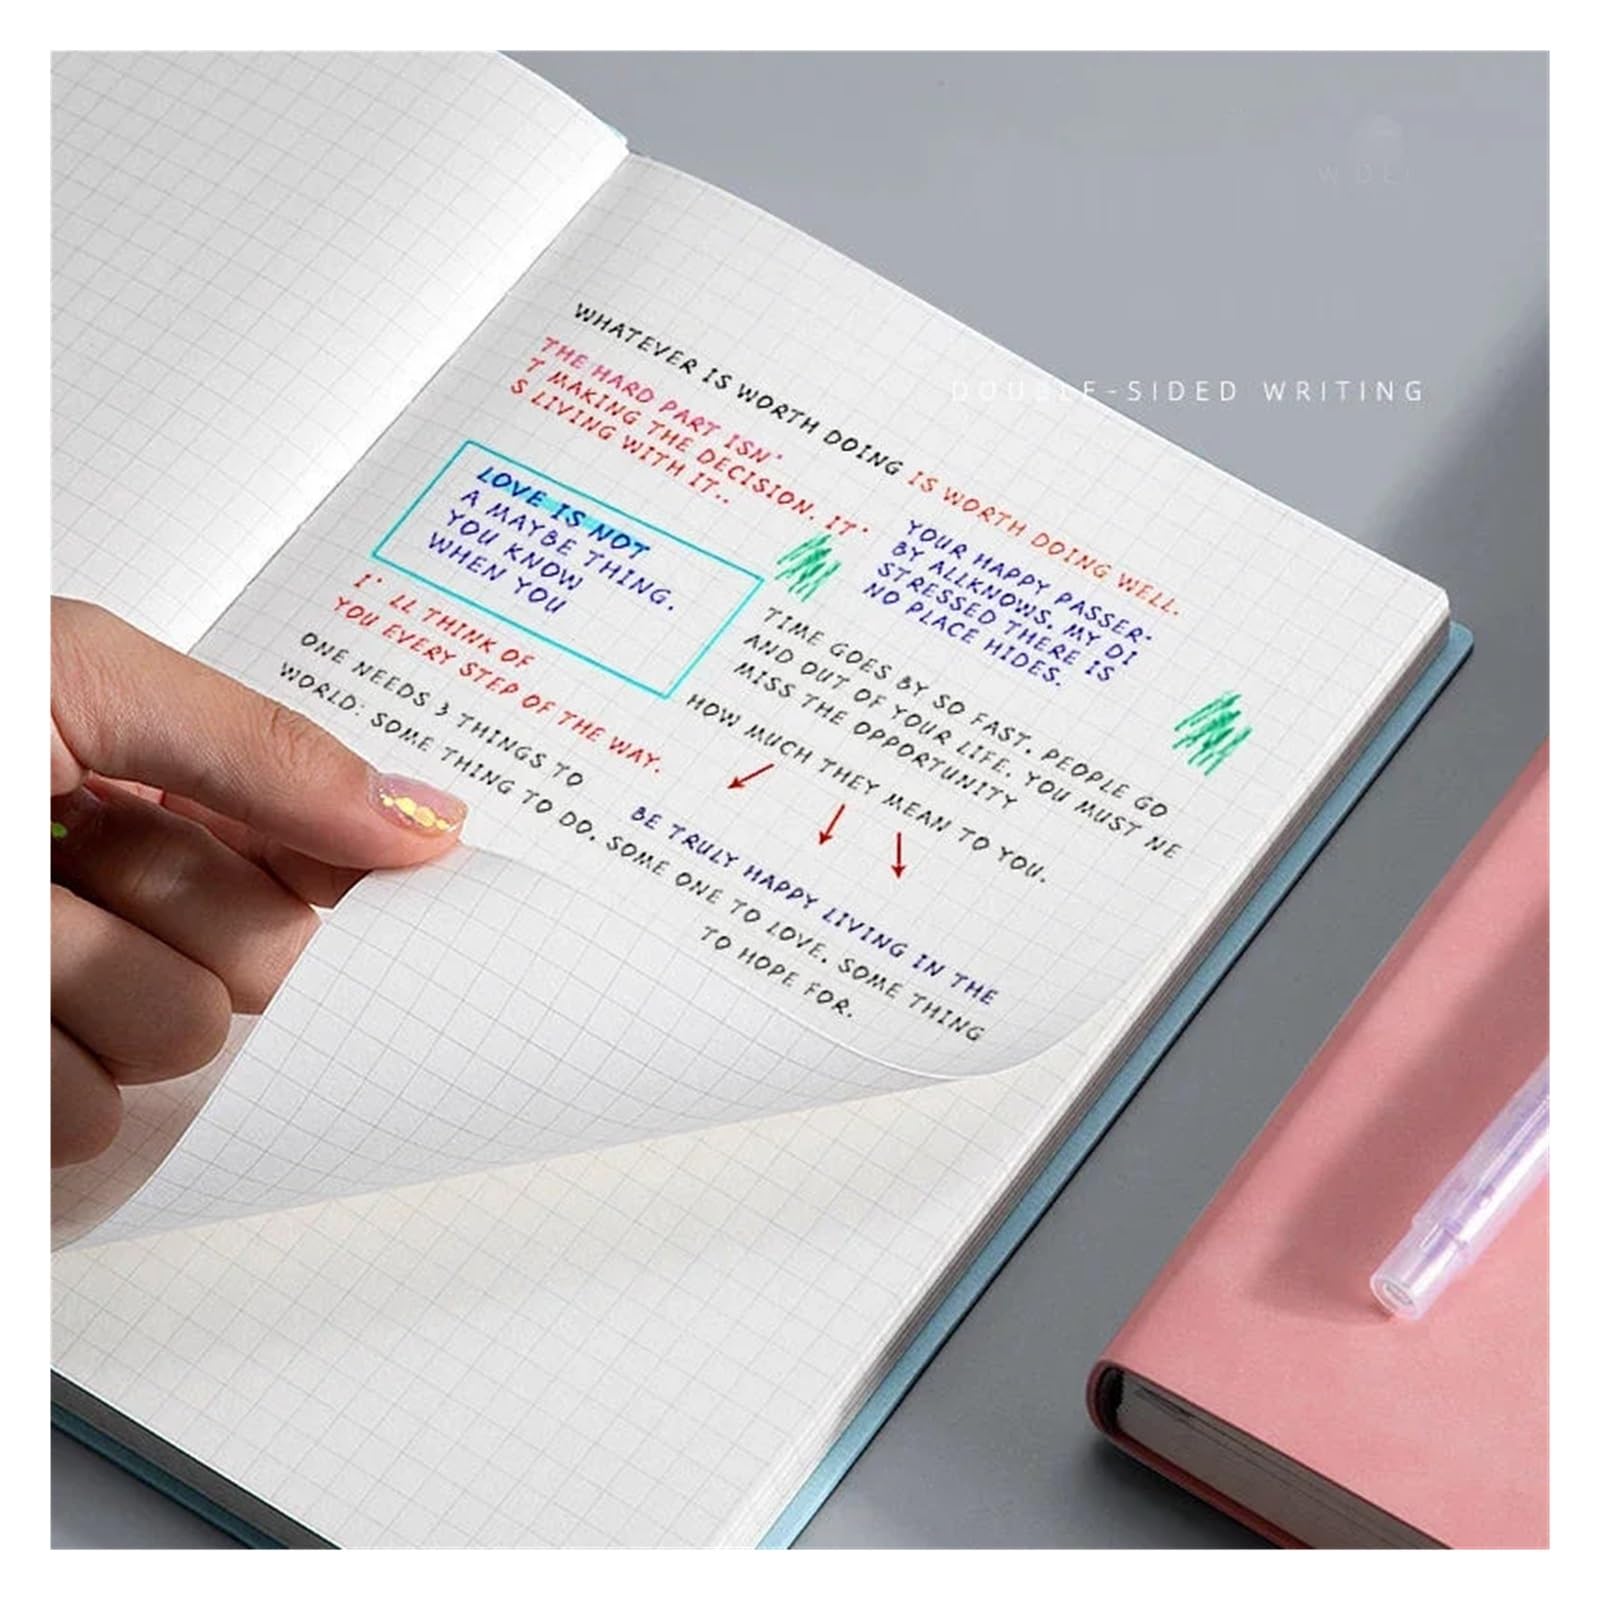 DOUBLE-SIDED WRITING
WHATEVER IS WORTH DOING IS WORTH DOING WELL.
THE HARD PART ISN'
T MAKING THE DECISION. IT'
S LIVING WITH IT..
LOVE IS NOT
A MAYBE THING.
YOU KNOW
WHEN YOU
YOUR HAPPY PASSER-
BY ALLKNOWS. MY DI
STRESSED THERE IS
NO PLACE HIDES.
I' LL THINK OF
YOU EVERY STEP OF THE WAY.
TIME GOES BY SO FAST. PEOPLE GO
AND OUT OF YOUR LIFE. YOU MUST NE
MISS THE OPPORTUNITY
HOW MUCH THEY MEAN TO YOU.
ONE NEEDS 3 THINGS TO
BE TRULY HAPPY LIVING IN THE
WORLD: SOME THING TO DO. SOME ONE TO LOVE. SOME THING
TO HOPE FOR.